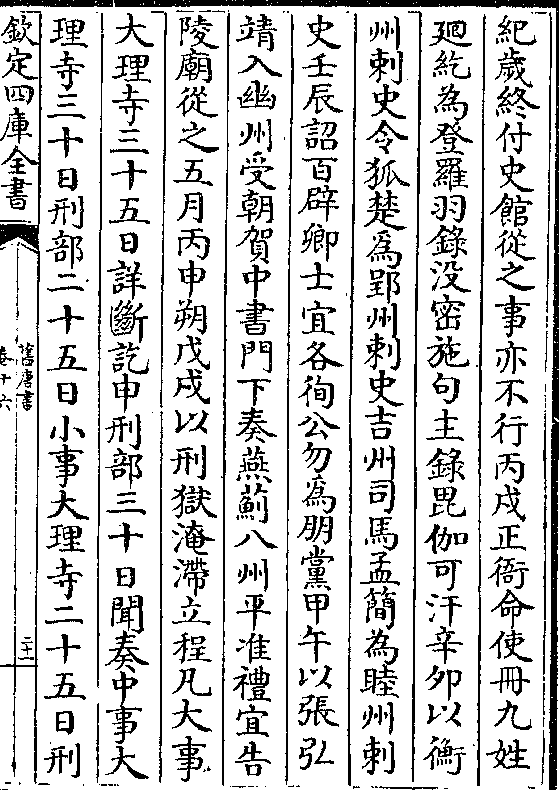 紀歲終付史館從之事亦不行丙戌正衙命使冊九姓
廻紇為登羅羽錄没密施句主錄毘伽可汗辛夘以衡
州刺史令狐楚爲郢州刺史吉州司馬孟簡為睦州刺
史壬辰詔百辟卿士宜各徇公勿爲朋黨甲午以張弘
靖入幽州受朝賀中書門下奏燕薊八州平准禮宜告
陵廟從之五月丙申朔戊戌以刑獄淹滯立程凡大事
大理寺三十五日詳斷訖申刑部三十日聞奏中事大
理寺三十日刑部二十五日小事大理寺二十五日刑
欽定四庫全書
舊唐書
卷十六
二十一